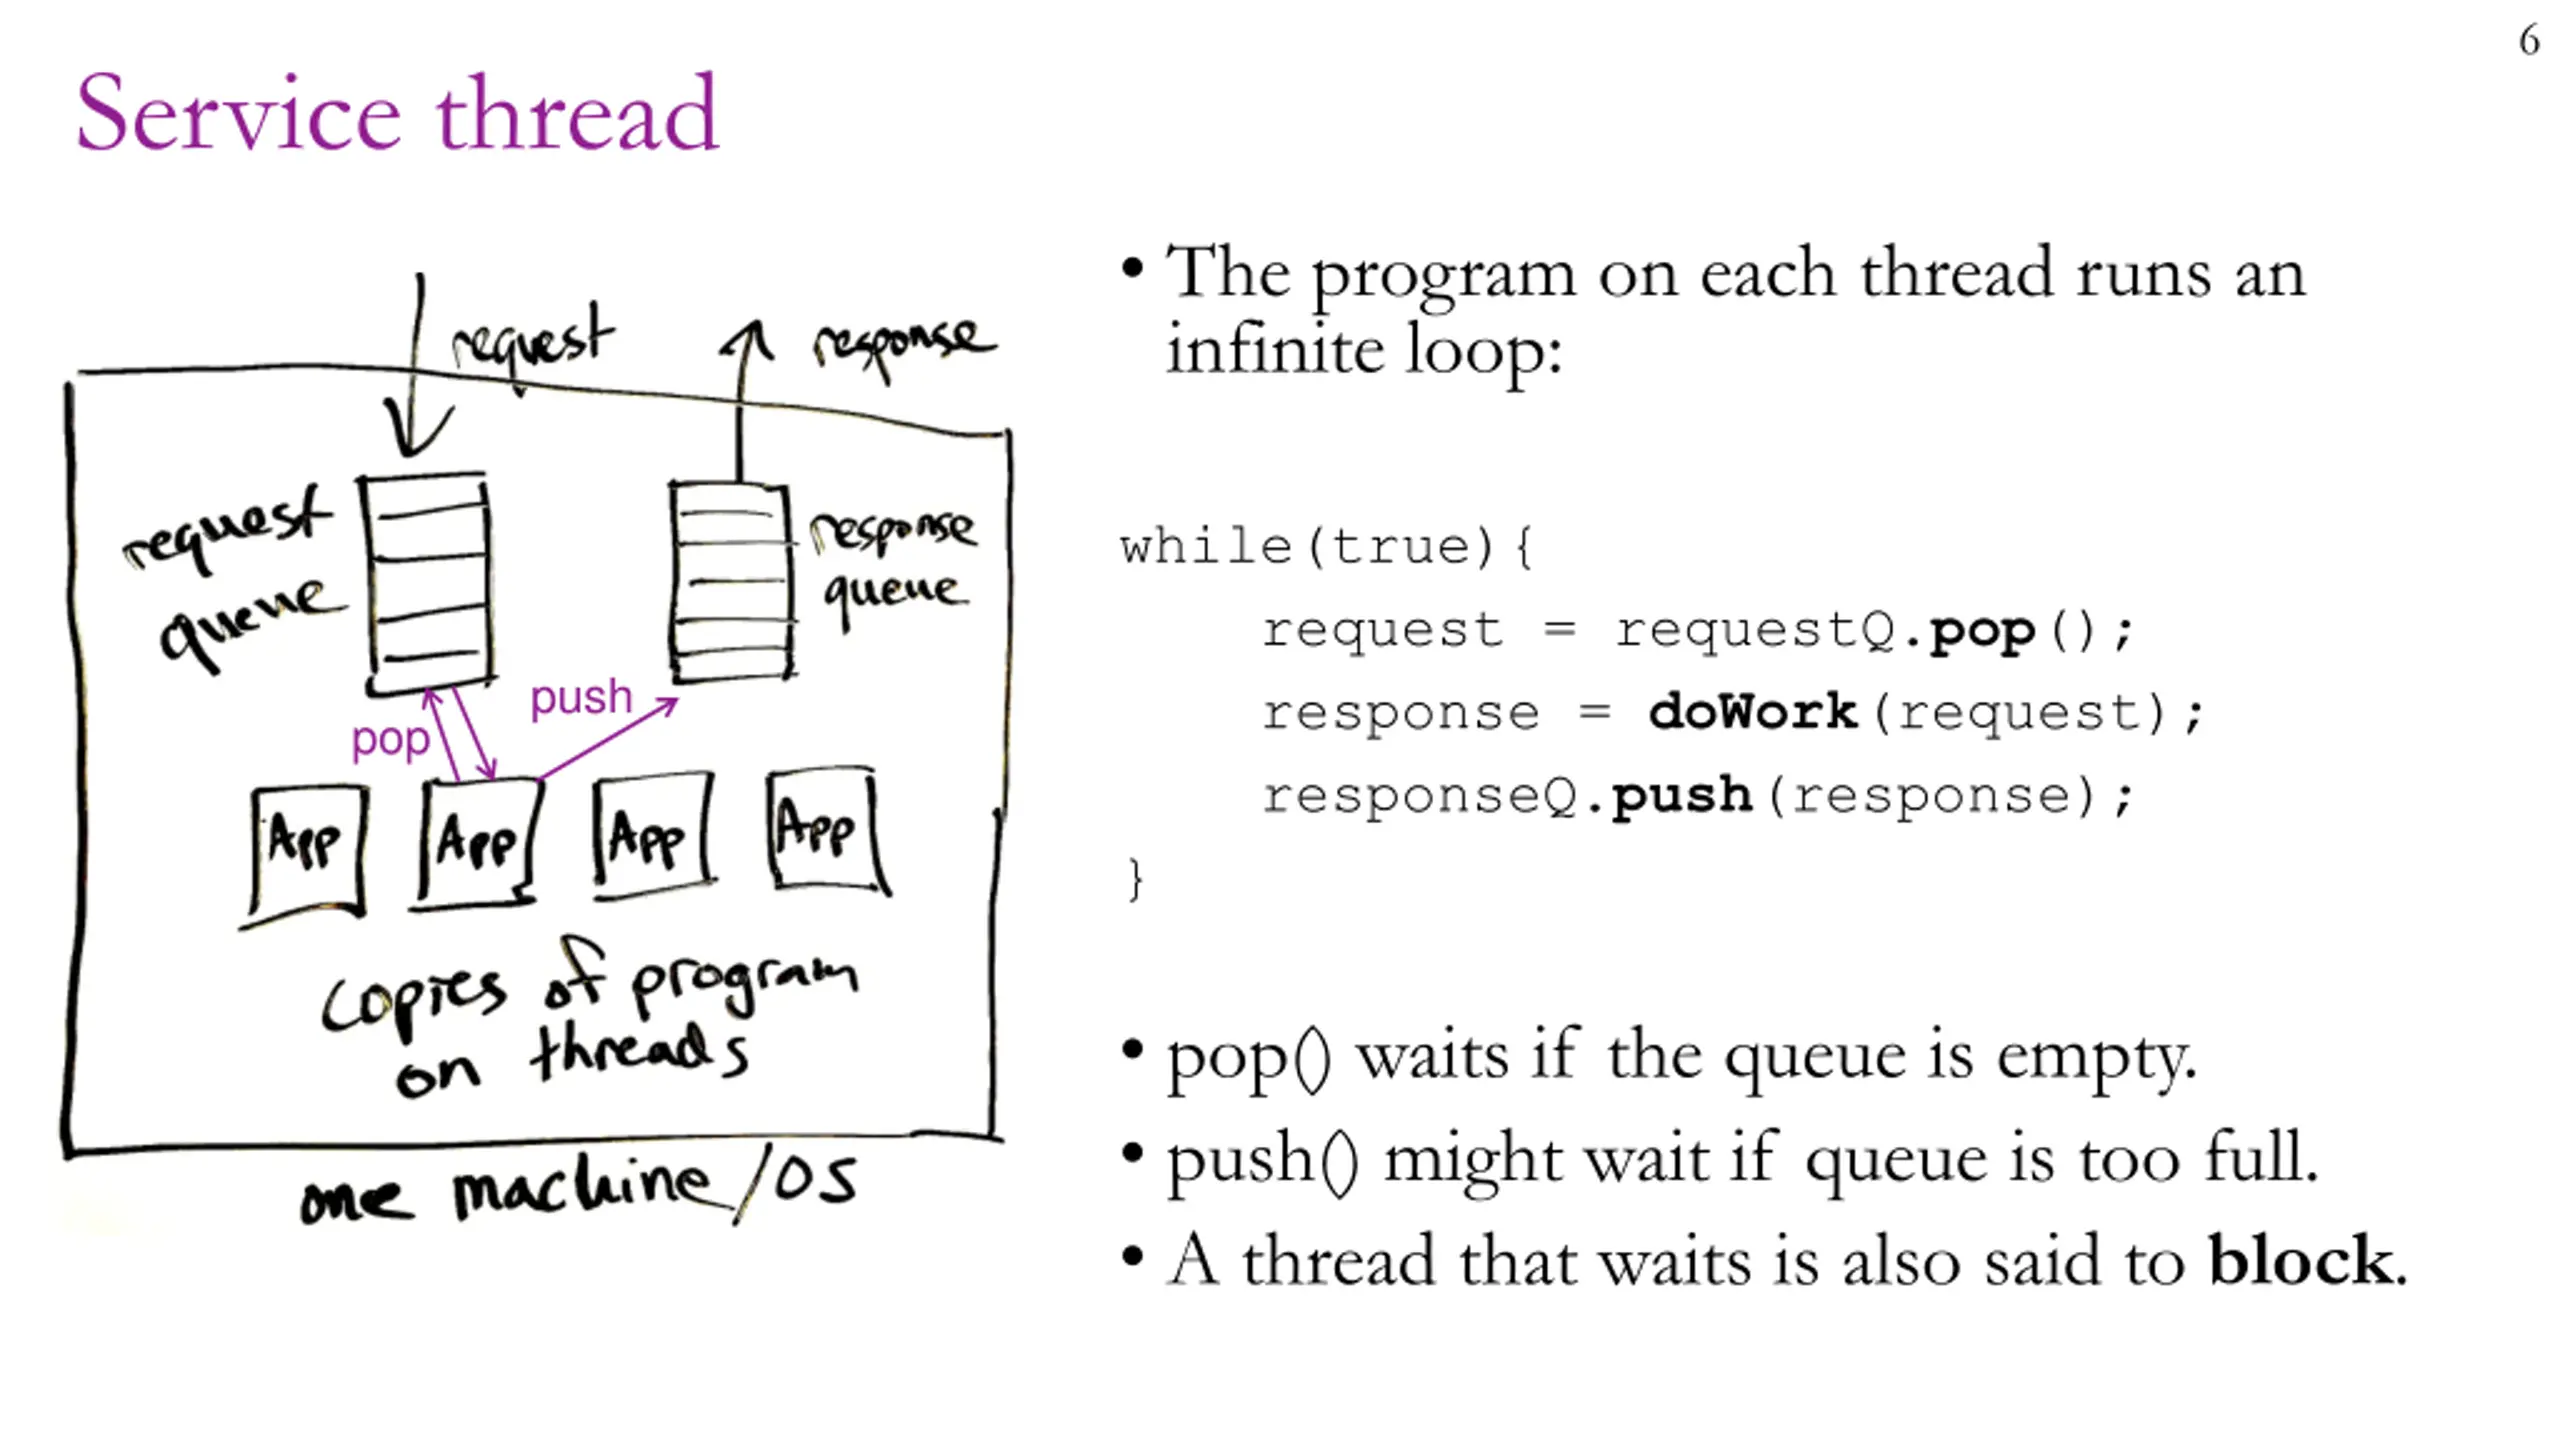 6
Service thread
request
response
request
queue
response
queue
push
pop
App App App App
copies of program
on threads
one machine/OS
• The program on each thread runs an
infinite loop:
while(true){
request = requestQ.pop();
response = doWork(request);
responseQ.push(response);
}
• pop() waits if the queue is empty.
• push() might wait if queue is too full.
• A thread that waits is also said to block.